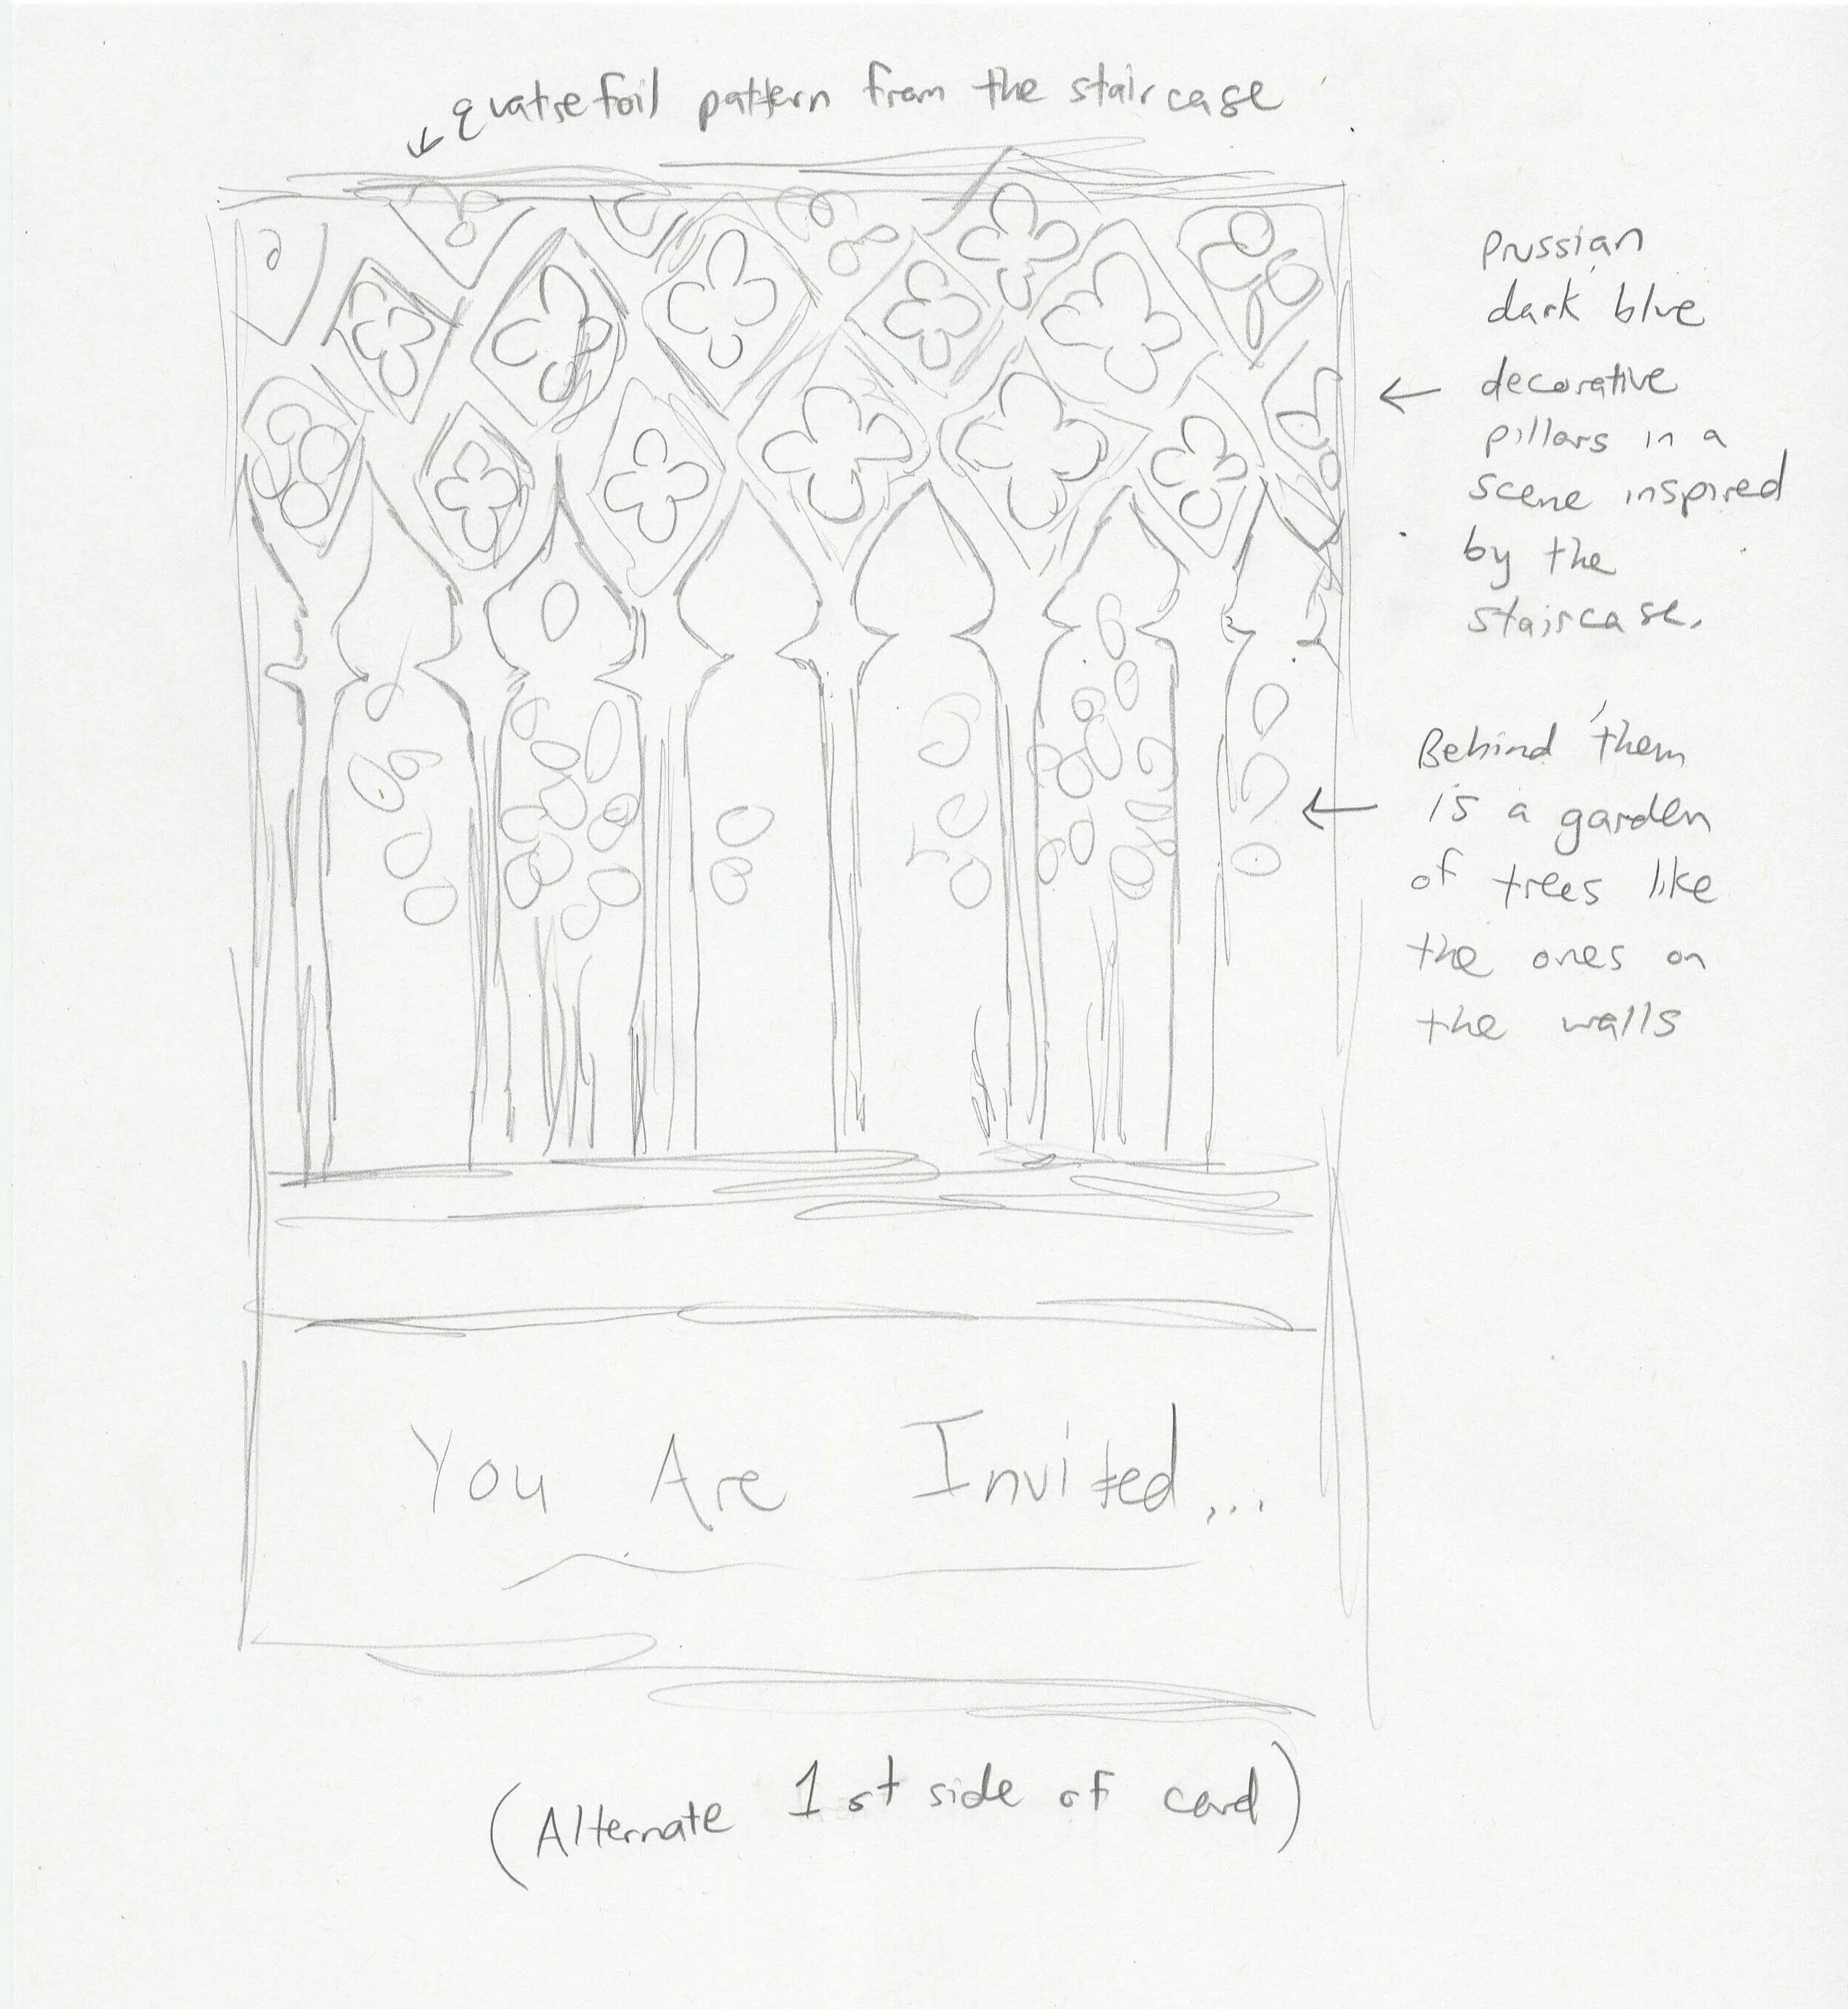 quatrefoil pattern from the staircase
Prussian
dark blue
decorative
pillars in a
scene inspired
by the
staircase.
Behind them
is a garden
of trees like
the ones on
the walls
You Are Invited...
(Alternate 1st side of card)